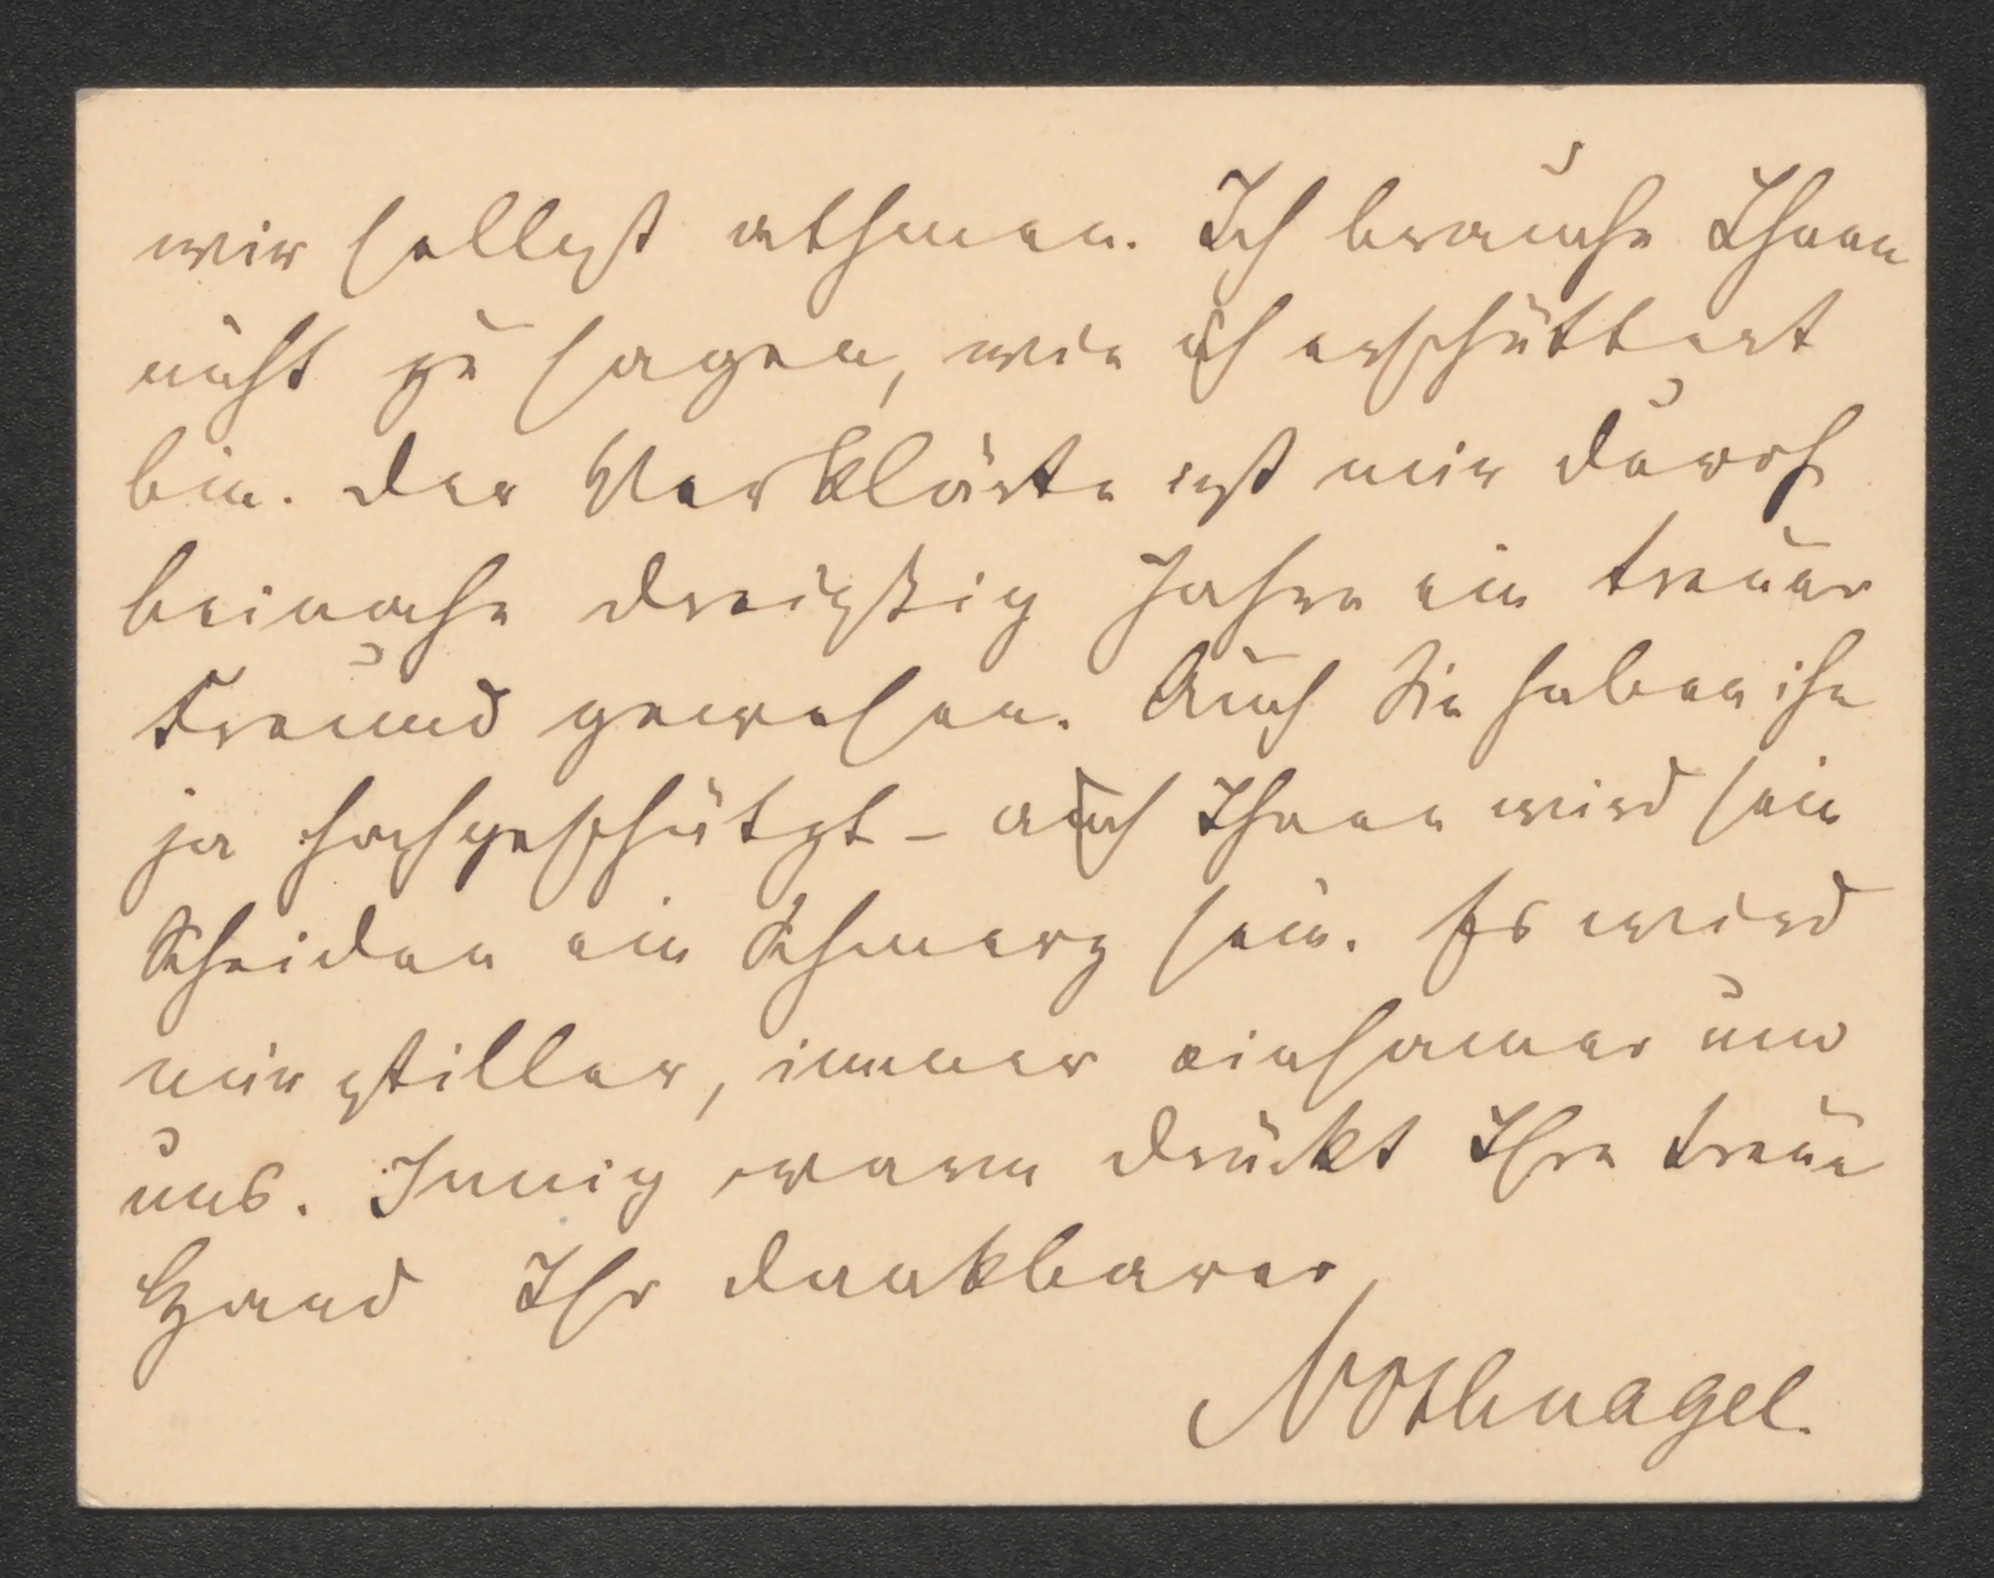 wir selbst athmen. Ich brauche Ihnen
nicht zu sagen, wie ich erschüttert
bin. Der Verklärte ist mir durch
beinahe dreißig Jahre ein treuer
Freund gewesen. Auch Sie haben ihn
ja hochgeschätzt - auch Ihnen wird sein
Scheiden ein Schmerz sein. Es wird
nur stiller, immer einsamer um
uns. Innig warm drückt Ihre treue
Hand Ihr dankbarer
Nothnagel.